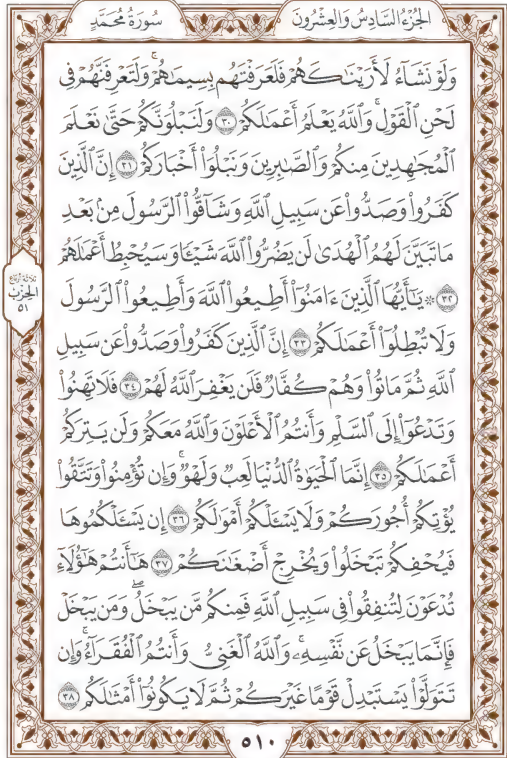 الجُزْءُ السَّادِسُ وَالعِشْرُونَ
سُورَةُ مُحَمَّدٍ
وَلَوْ نَشَآءُ لَأَرَيْنَٰكَهُمْ فَلَعَرَفْتَهُم بِسِيمَٰهُمْۚ وَلَتَعْرِفَنَّهُمْ فِى
لَحْنِ ٱلْقَوْلِۚ وَٱللَّهُ يَعْلَمُ أَعْمَٰلَكُمْ ٣٠ وَلَنَبْلُوَنَّكُمْ حَتَّىٰ نَعْلَمَ
ٱلْمُجَٰهِدِينَ مِنكُمْ وَٱلصَّٰبِرِينَ وَنَبْلُوَا۟ أَخْبَارَكُمْ ٣١ إِنَّ ٱلَّذِينَ
كَفَرُوا۟ وَصَدُّوا۟ عَن سَبِيلِ ٱللَّهِ وَشَآقُّوا۟ ٱلرَّسُولَ مِنۢ بَعْدِ
مَا تَبَيَّنَ لَهُمُ ٱلْهُدَىٰ لَن يَضُرُّوا۟ ٱللَّهَ شَيْـًٔا وَسَيُحْبِطُ أَعْمَٰلَهُمْ
٣٢ ۞ يَٰٓأَيُّهَا ٱلَّذِينَ ءَامَنُوٓا۟ أَطِيعُوا۟ ٱللَّهَ وَأَطِيعُوا۟ ٱلرَّسُولَ
وَلَا تُبْطِلُوٓا۟ أَعْمَٰلَكُمْ ٣٣ إِنَّ ٱلَّذِينَ كَفَرُوا۟ وَصَدُّوا۟ عَن سَبِيلِ
ٱللَّهِ ثُمَّ مَاتُوا۟ وَهُمْ كُفَّارٌ فَلَن يَغْفِرَ ٱللَّهُ لَهُمْ ٣٤ فَلَا تَهِنُوا۟
وَتَدْعُوٓا۟ إِلَى ٱلسَّلْمِ وَأَنتُمُ ٱلْأَعْلَوْنَ وَٱللَّهُ مَعَكُمْ وَلَن يَتِرَكُمْ
أَعْمَٰلَكُمْ ٣٥ إِنَّمَا ٱلْحَيَوٰةُ ٱلدُّنْيَا لَعِبٌ وَلَهْوٌۚ وَإِن تُؤْمِنُوا۟ وَتَتَّقُوا۟
يُؤْتِكُمْ أُجُورَكُمْ وَلَا يَسْـَٔلْكُمْ أَمْوَٰلَكُمْ ٣٦ إِن يَسْـَٔلْكُمُوهَا
فَيُحْفِكُمْ تَبْخَلُوا۟ وَيُخْرِجْ أَضْغَٰنَكُمْ ٣٧ هَٰٓأَنتُمْ هَٰٓؤُلَآءِ
تُدْعَوْنَ لِتُنفِقُوا۟ فِى سَبِيلِ ٱللَّهِ فَمِنكُم مَّن يَبْخَلُۖ وَمَن يَبْخَلْ
فَإِنَّمَا يَبْخَلُ عَن نَّفْسِهِۦۚ وَٱللَّهُ ٱلْغَنِىُّ وَأَنتُمُ ٱلْفُقَرَآءُۚ وَإِن
تَتَوَلَّوْا۟ يَسْتَبْدِلْ قَوْمًا غَيْرَكُمْ ثُمَّ لَا يَكُونُوٓا۟ أَمْثَٰلَكُم ٣٨
ثلاثة أرباع
الحزب
٥١
٥١٠